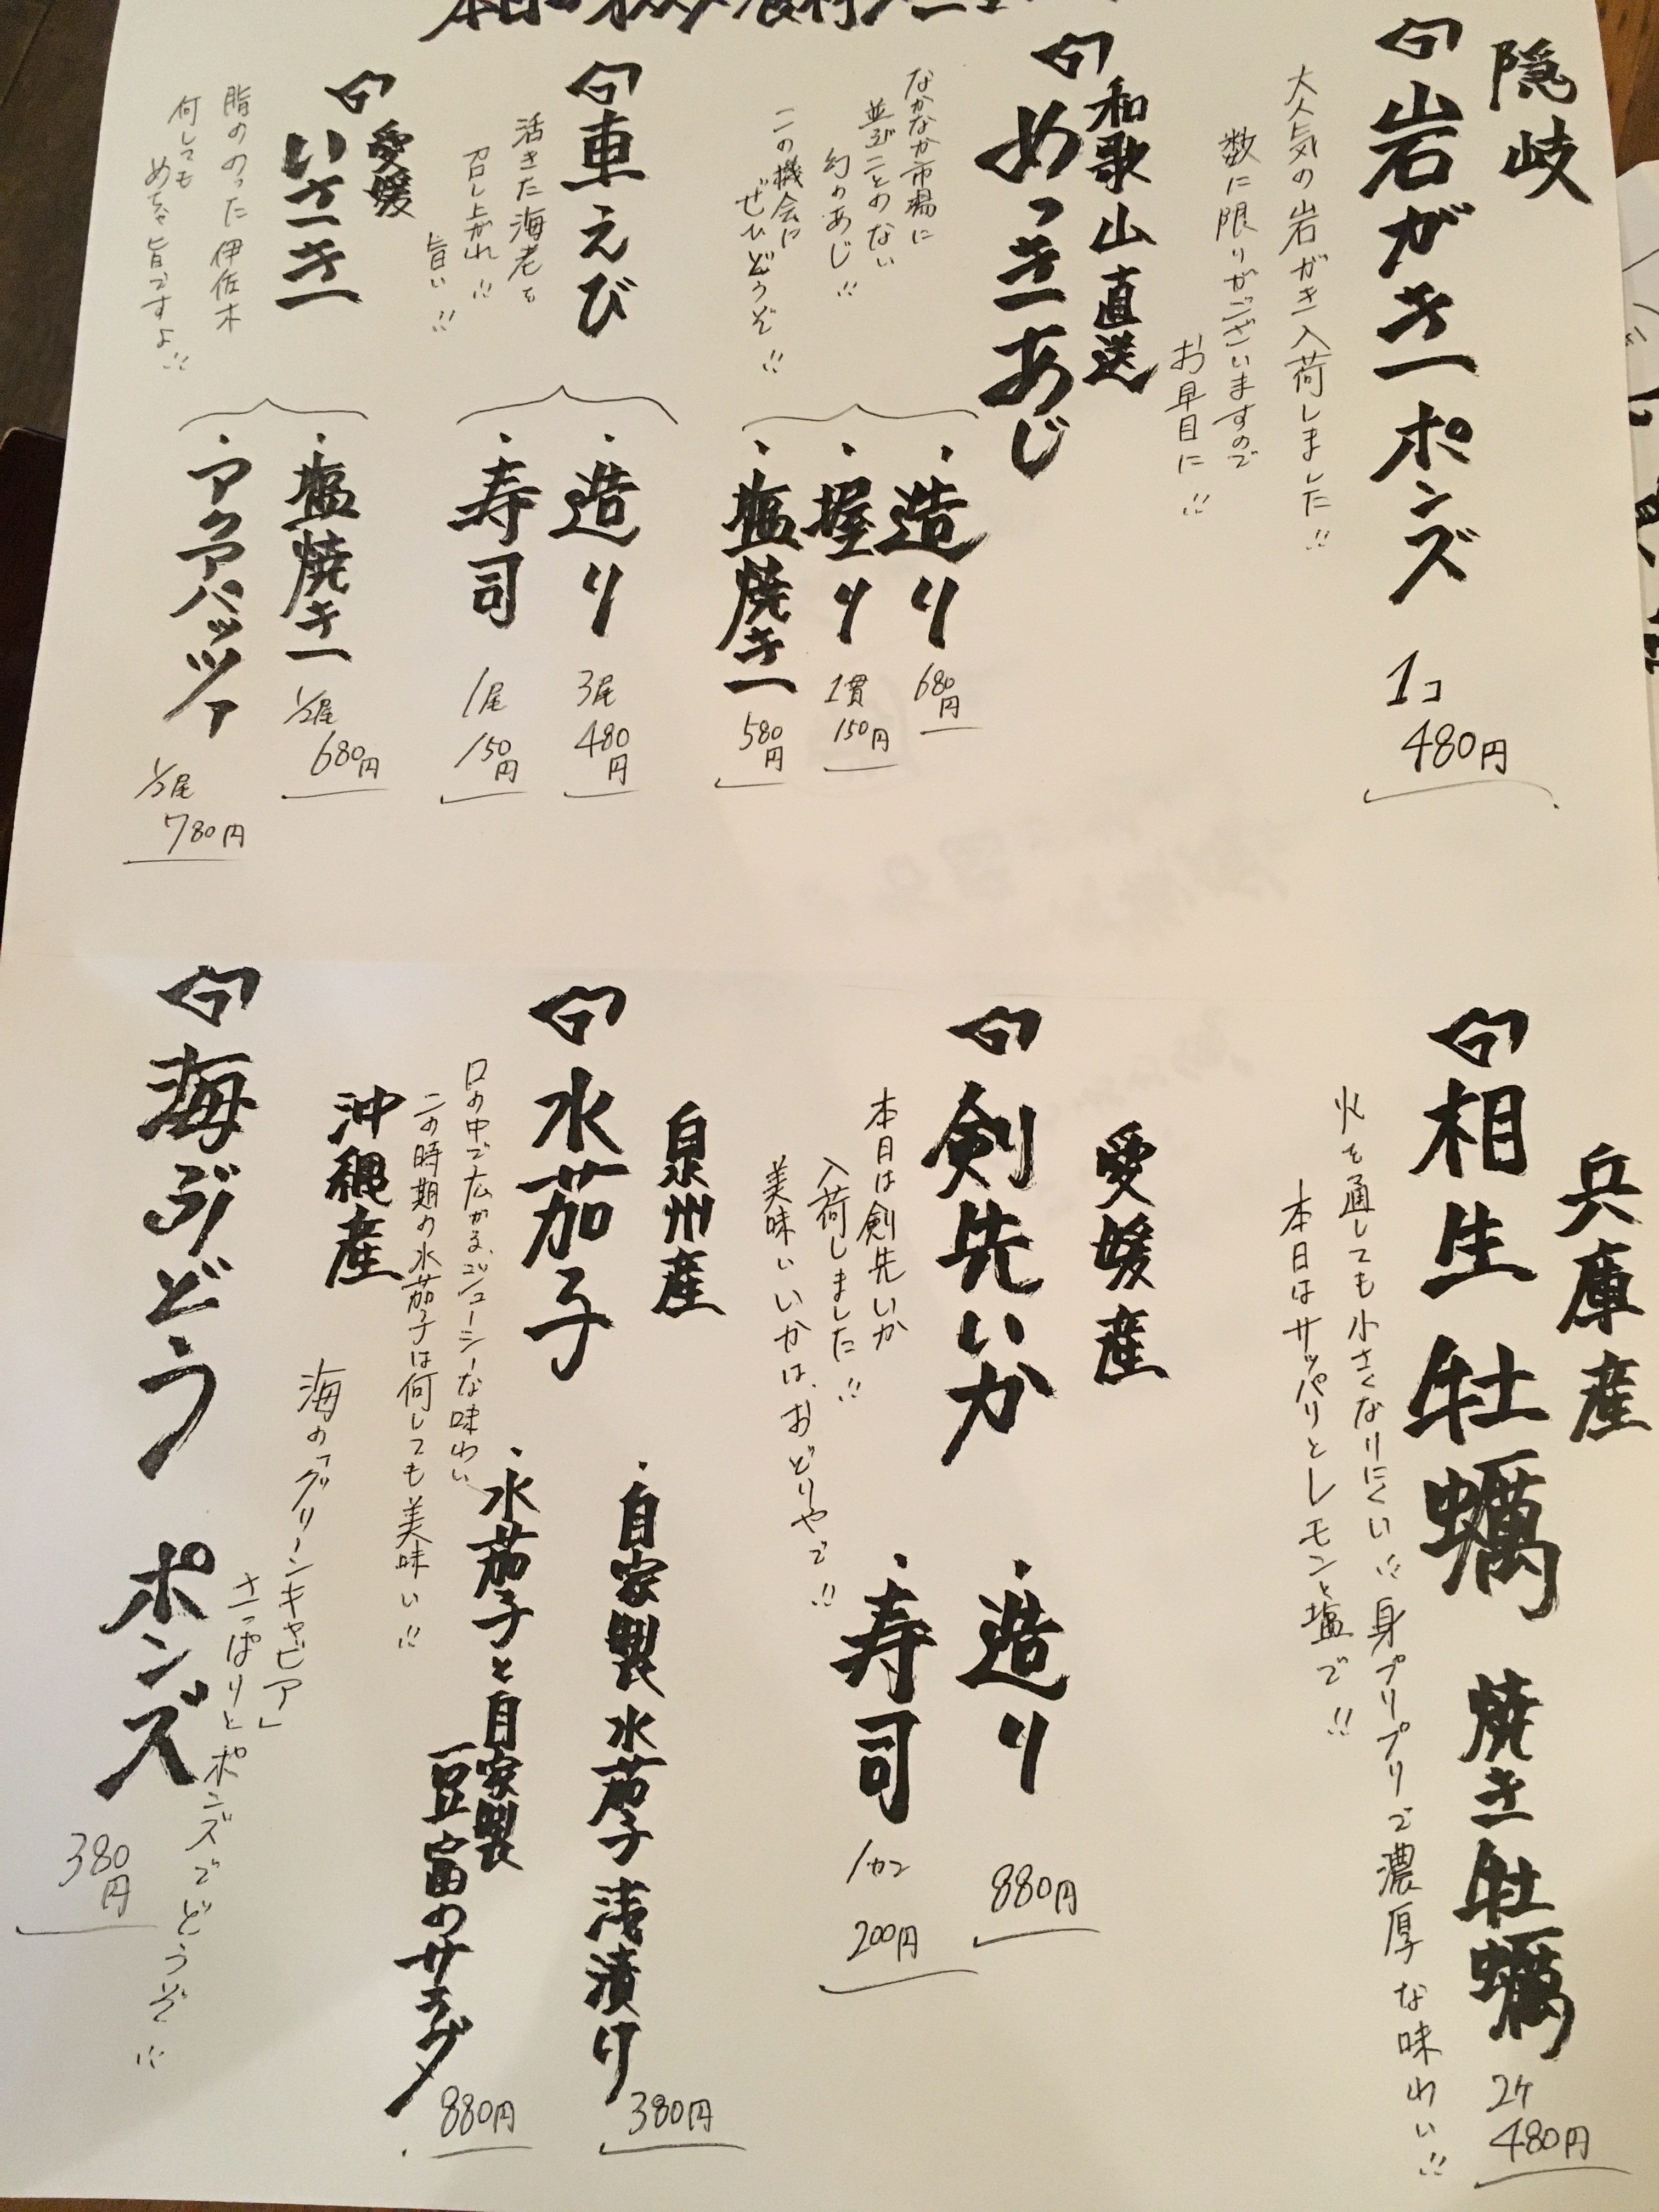 隠岐
岩がきポンズ
1コ
480円
大人気の岩がき入荷しました!!
数に限りがございますので
お早目に!!
和歌山直送
めっきあじ
なかなか市場に
並ぶことのない
幻のあじ!!
この機会に
ぜひどうぞ!!
・造り
680円
・握り
1貫
150円
・塩焼き
580円
車えび
活きた海老を
召し上がれ!!
旨い!!
・造り
3尾
480円
・寿司
1尾
150円
愛媛
いさき
脂ののった伊佐木
何しても
めちゃ旨ですよ!!
・塩焼き
1/2尾
680円
・アクアパッツァ
1/2尾
780円
兵庫産
相生牡蠣 焼き牡蠣
2ケ
480円
火を通しても小さくなりにくい!!身プリプリで濃厚な味わい!!
本日はサッパリとレモンと塩で!!
愛媛産
剣先いか
本日は剣先いか
入荷しました!!
美味いいかは、おどりやで!!
・造り
880円
・寿司
1カン
200円
泉州産
水茄子
・自家製水茄子浅漬け
380円
・水茄子と自家製
豆富のサラダ
880円
口の中で広がる、ジューシーな味わい
この時期の水茄子は何しても美味い!!
沖縄産
海ぶどう ポンズ
380円
海の「グリーンキャビア」
さっぱりとポンズでどうぞ!!